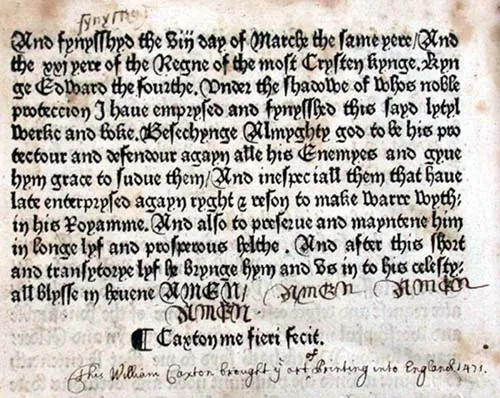 fynysshed
And fynysshyd the viij day of Marche the same yere/And
the xxj yere of the Regne of the most Crysten kynge. Kyn
ge Edward the fourthe. Vnder the shadowe of whos noble
proteccion I have emprysed and fynysshed this sayd lytyl
werke and boke. Besechynge Almyghty god to be his pro
tectour and defendour agayn alle his Enemyes and gyue
hym grace to subue them/And inespeciall them that haue
late enterprysed agayn ryght & reson to make warre wyth⸗
in his Royamme. And also to preserue and mayntene him
in longe lyf and prosperous helthe. And after this short
and transytorye lyf he brynge hym and vs in to his celesty⸗
all blysse in heuene AMEN/ AMEN AMEN
AMEN
¶ Caxton me fieri fecit.
This William Caxton brought yͤ art of Printing into England 1471.